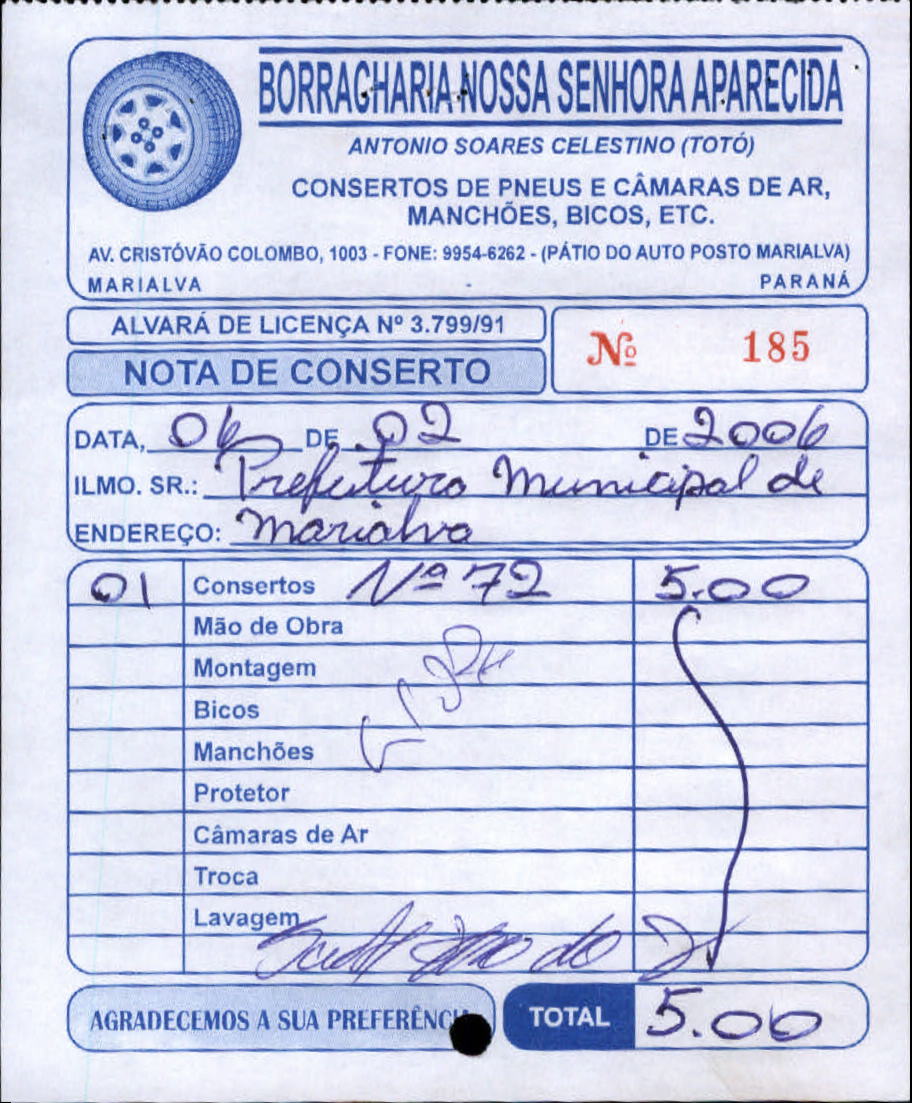 BORRACHARIA NOSSA SENHORA APARECIDA
ANTONIO SOARES CELESTINO (TOTÓ)
CONSERTOS DE PNEUS E CÂMARAS DE AR,
MANCHÕES, BICOS, ETC.
AV. CRISTÓVÃO COLOMBO, 1003 - FONE: 9954-6262 - (PÁTIO DO AUTO POSTO MARIALVA)
MARIALVA PARANÁ
ALVARÁ DE LICENÇA Nº 3.799/91
NOTA DE CONSERTO
Nº 185
DATA, 06 DE 02 DE 2006
ILMO. SR.: Prefeitura Municipal de
ENDEREÇO: Marialva
01 Consertos Nº 72 5.00
Mão de Obra
Montagem
Bicos
Manchões
Protetor
Câmaras de Ar
Troca
Lavagem
AGRADECEMOS A SUA PREFERÊNCIA
TOTAL 5.00